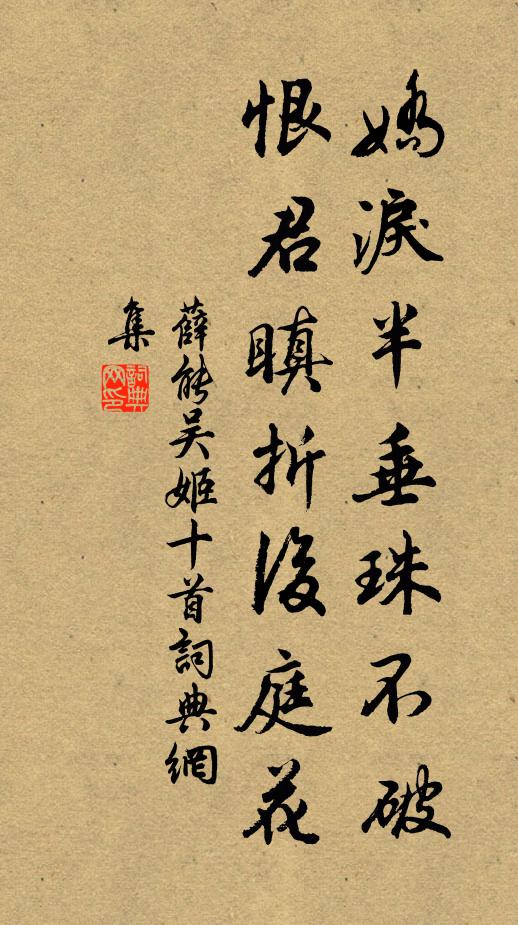 嬌淚半垂珠不破
恨君瞋折後庭花
薛能吳姬十首詞典網
集
詞典
網印